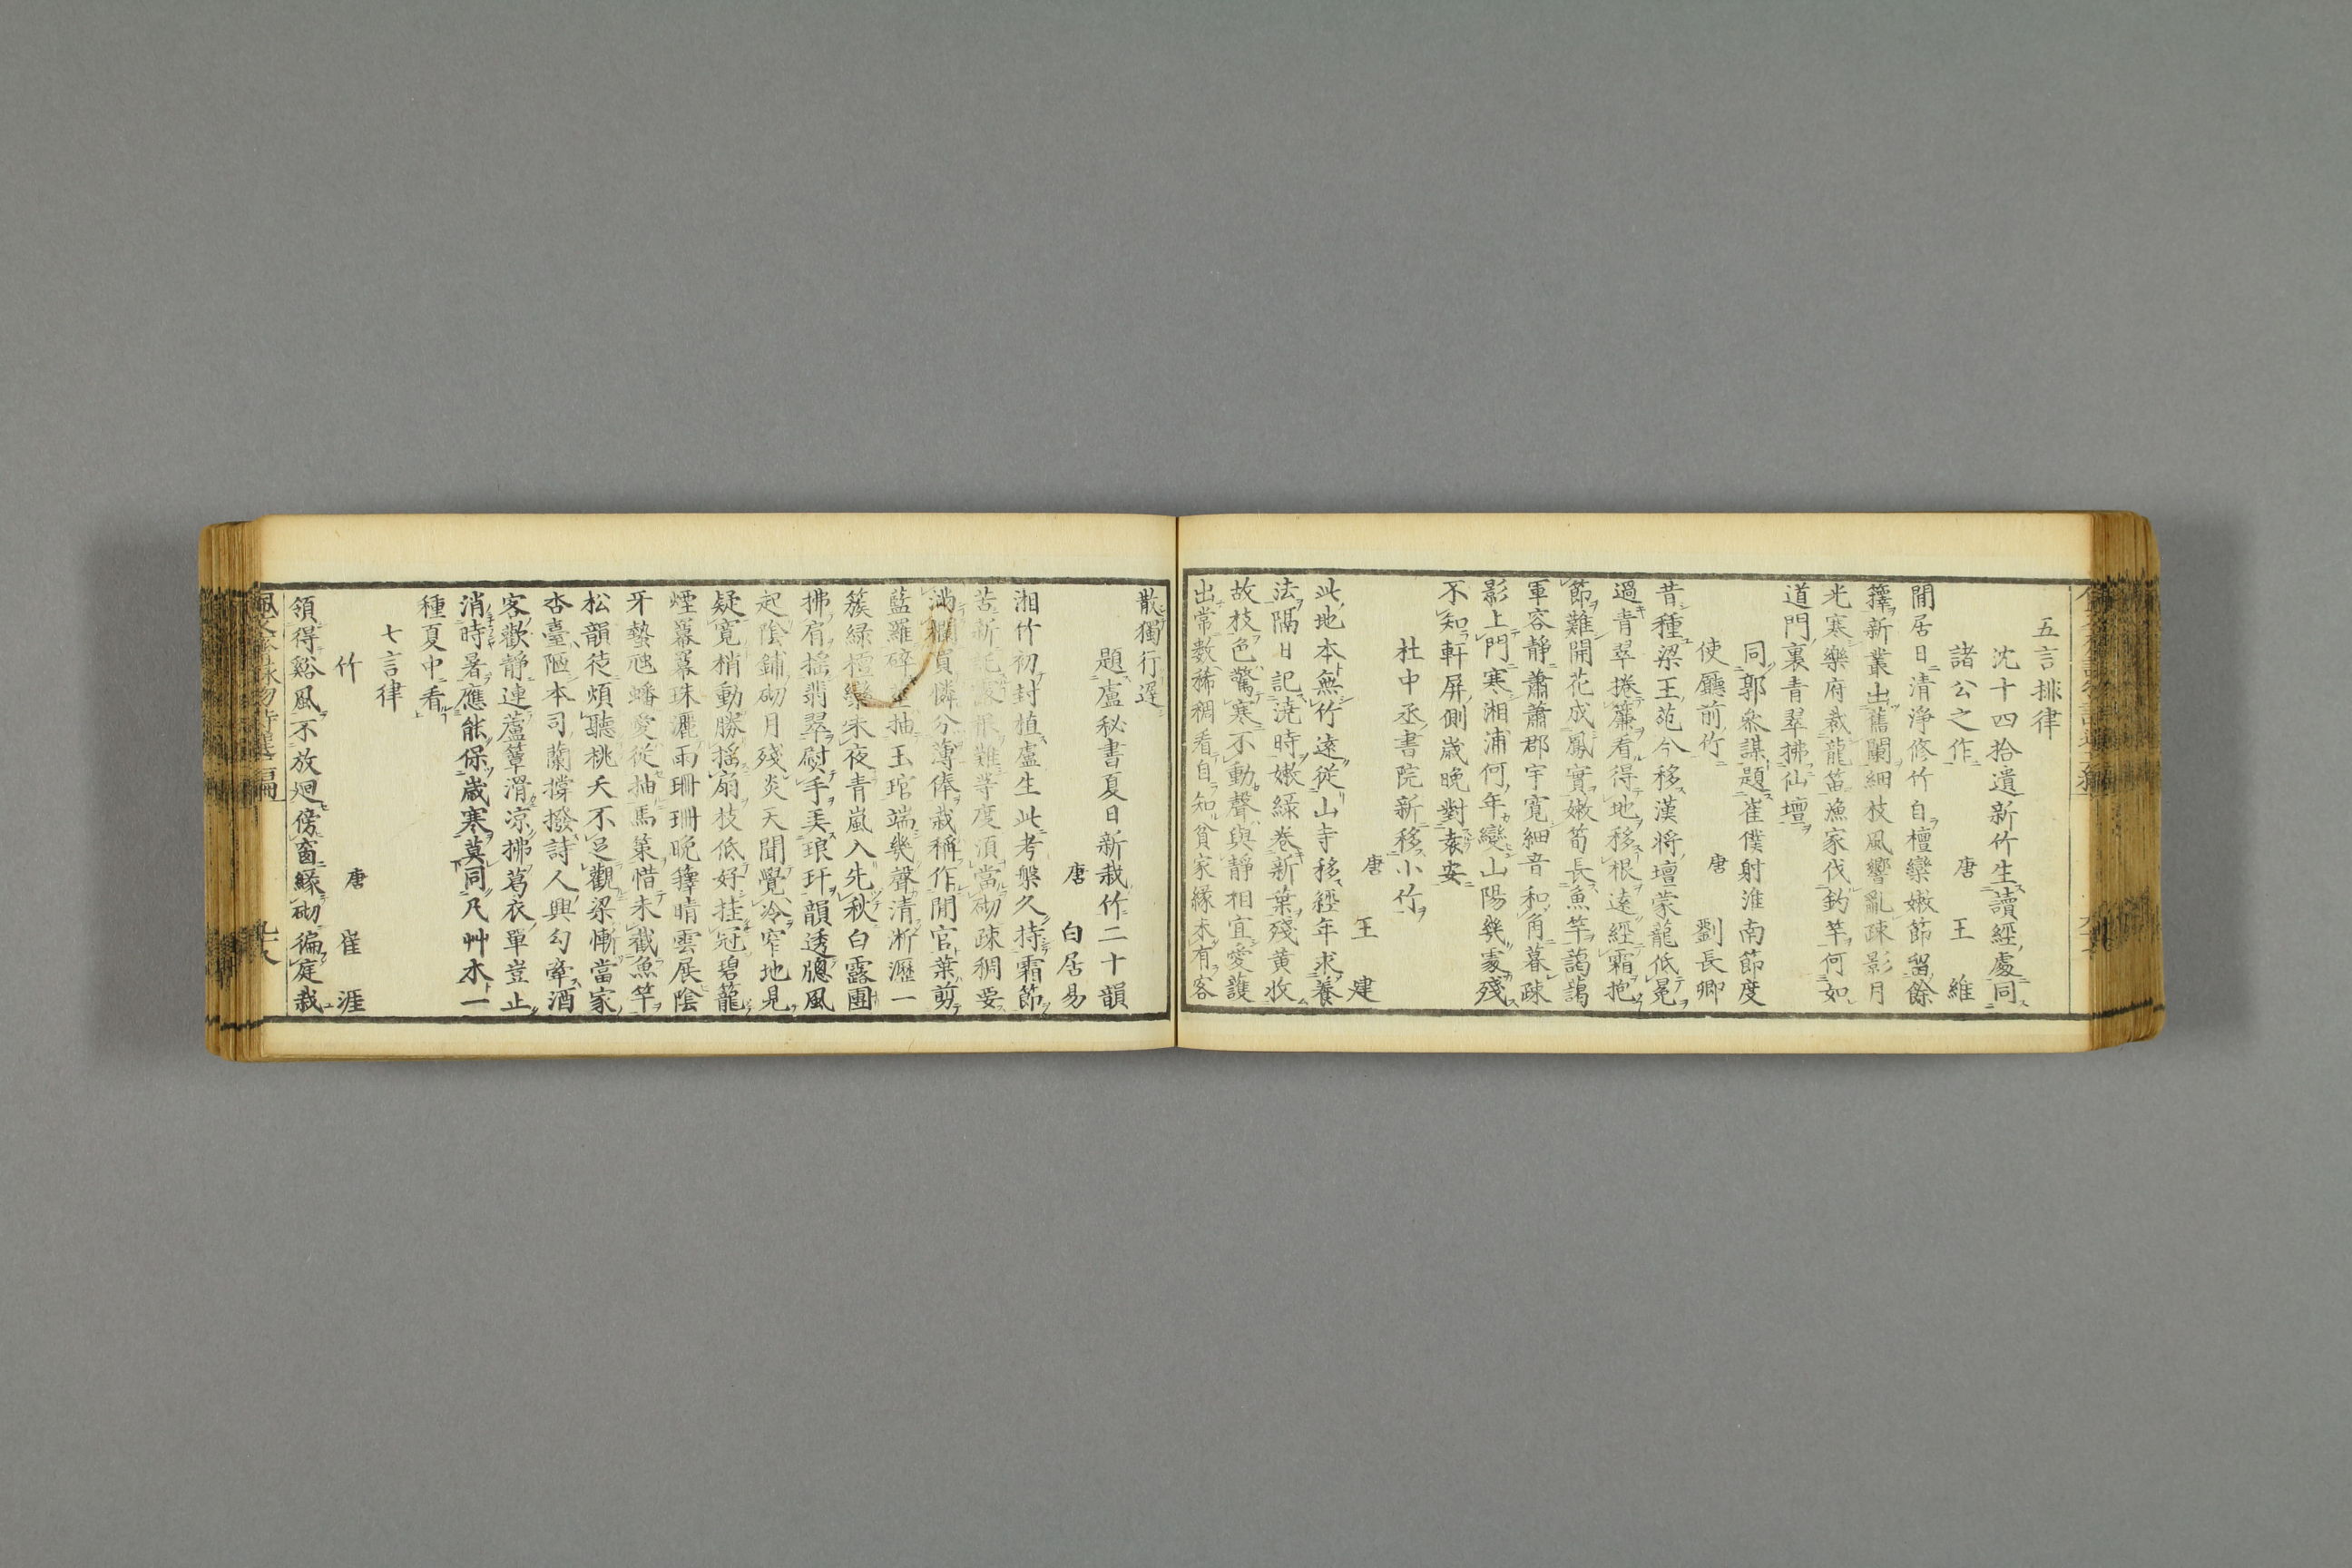 五言排律
沈十四拾遺新竹生讀經處同
諸公之作　唐　王維
閒居日清淨修竹自檀欒嫩節留餘
籜新叢出舊闌細枝風響亂疎影月
光寒樂府裁龍笛漁家伐釣竿何如
道門裏青翠拂仙壇
同郭參謀題崔僕射淮南節度
使廳前竹　唐　劉長卿
昔種梁王苑今移漢將壇蒙籠低冕
過青翠捲簾看得地移根遠經霜抱
節難開花成鳳實嫩筍長魚竿藹藹
軍容靜蕭蕭郡宇寬細音和角暮疎
影上門寒湘浦何年變山陽幾處殘
不知軒屏側歲晚對袁安
杜中丞書院新移小竹
唐　王建
此地本無竹遠從山寺移經年求養
法隔日記澆時嫩綠卷新葉殘黃收
故枝色驚寒不動聲與靜相宜愛護
出常數稀稠看自知貧家緣未有客
散獨行遲
題盧秘書夏日新栽竹二十韻
唐　白居易
湘竹初封植盧生此考槃久持霜節
苦新託露根難等度須當砌疎稠要
滿欄買憐分薄俸栽稱作閒官葉剪
藍羅碎抽玉琯端幾聲清淅瀝一
簇綠檀欒未夜青嵐入先秋白露團
拂肩搖翡翠熨手弄琅玕韻透牕風
起陰鋪砌月殘炎天聞覺冷窄地見
疑寬梢動勝搖扇枝低好挂冠碧籠
煙羃羃珠灑雨珊珊晚籜晴雲展陰
牙蟄虺蟠愛從抽馬策惜未截魚竿
松韻徒煩聽桃夭不足觀梁慚當家
杏臺陋本司蘭撐撥詩人興勾牽酒
客歡靜連蘆簟滑涼拂葛衣單豈止
消時暑應能保歲寒莫同凡艸木一
種夏中看
七言律
竹　唐　崔涯
領得谿風不放廻傍窗緣砌徧庭栽